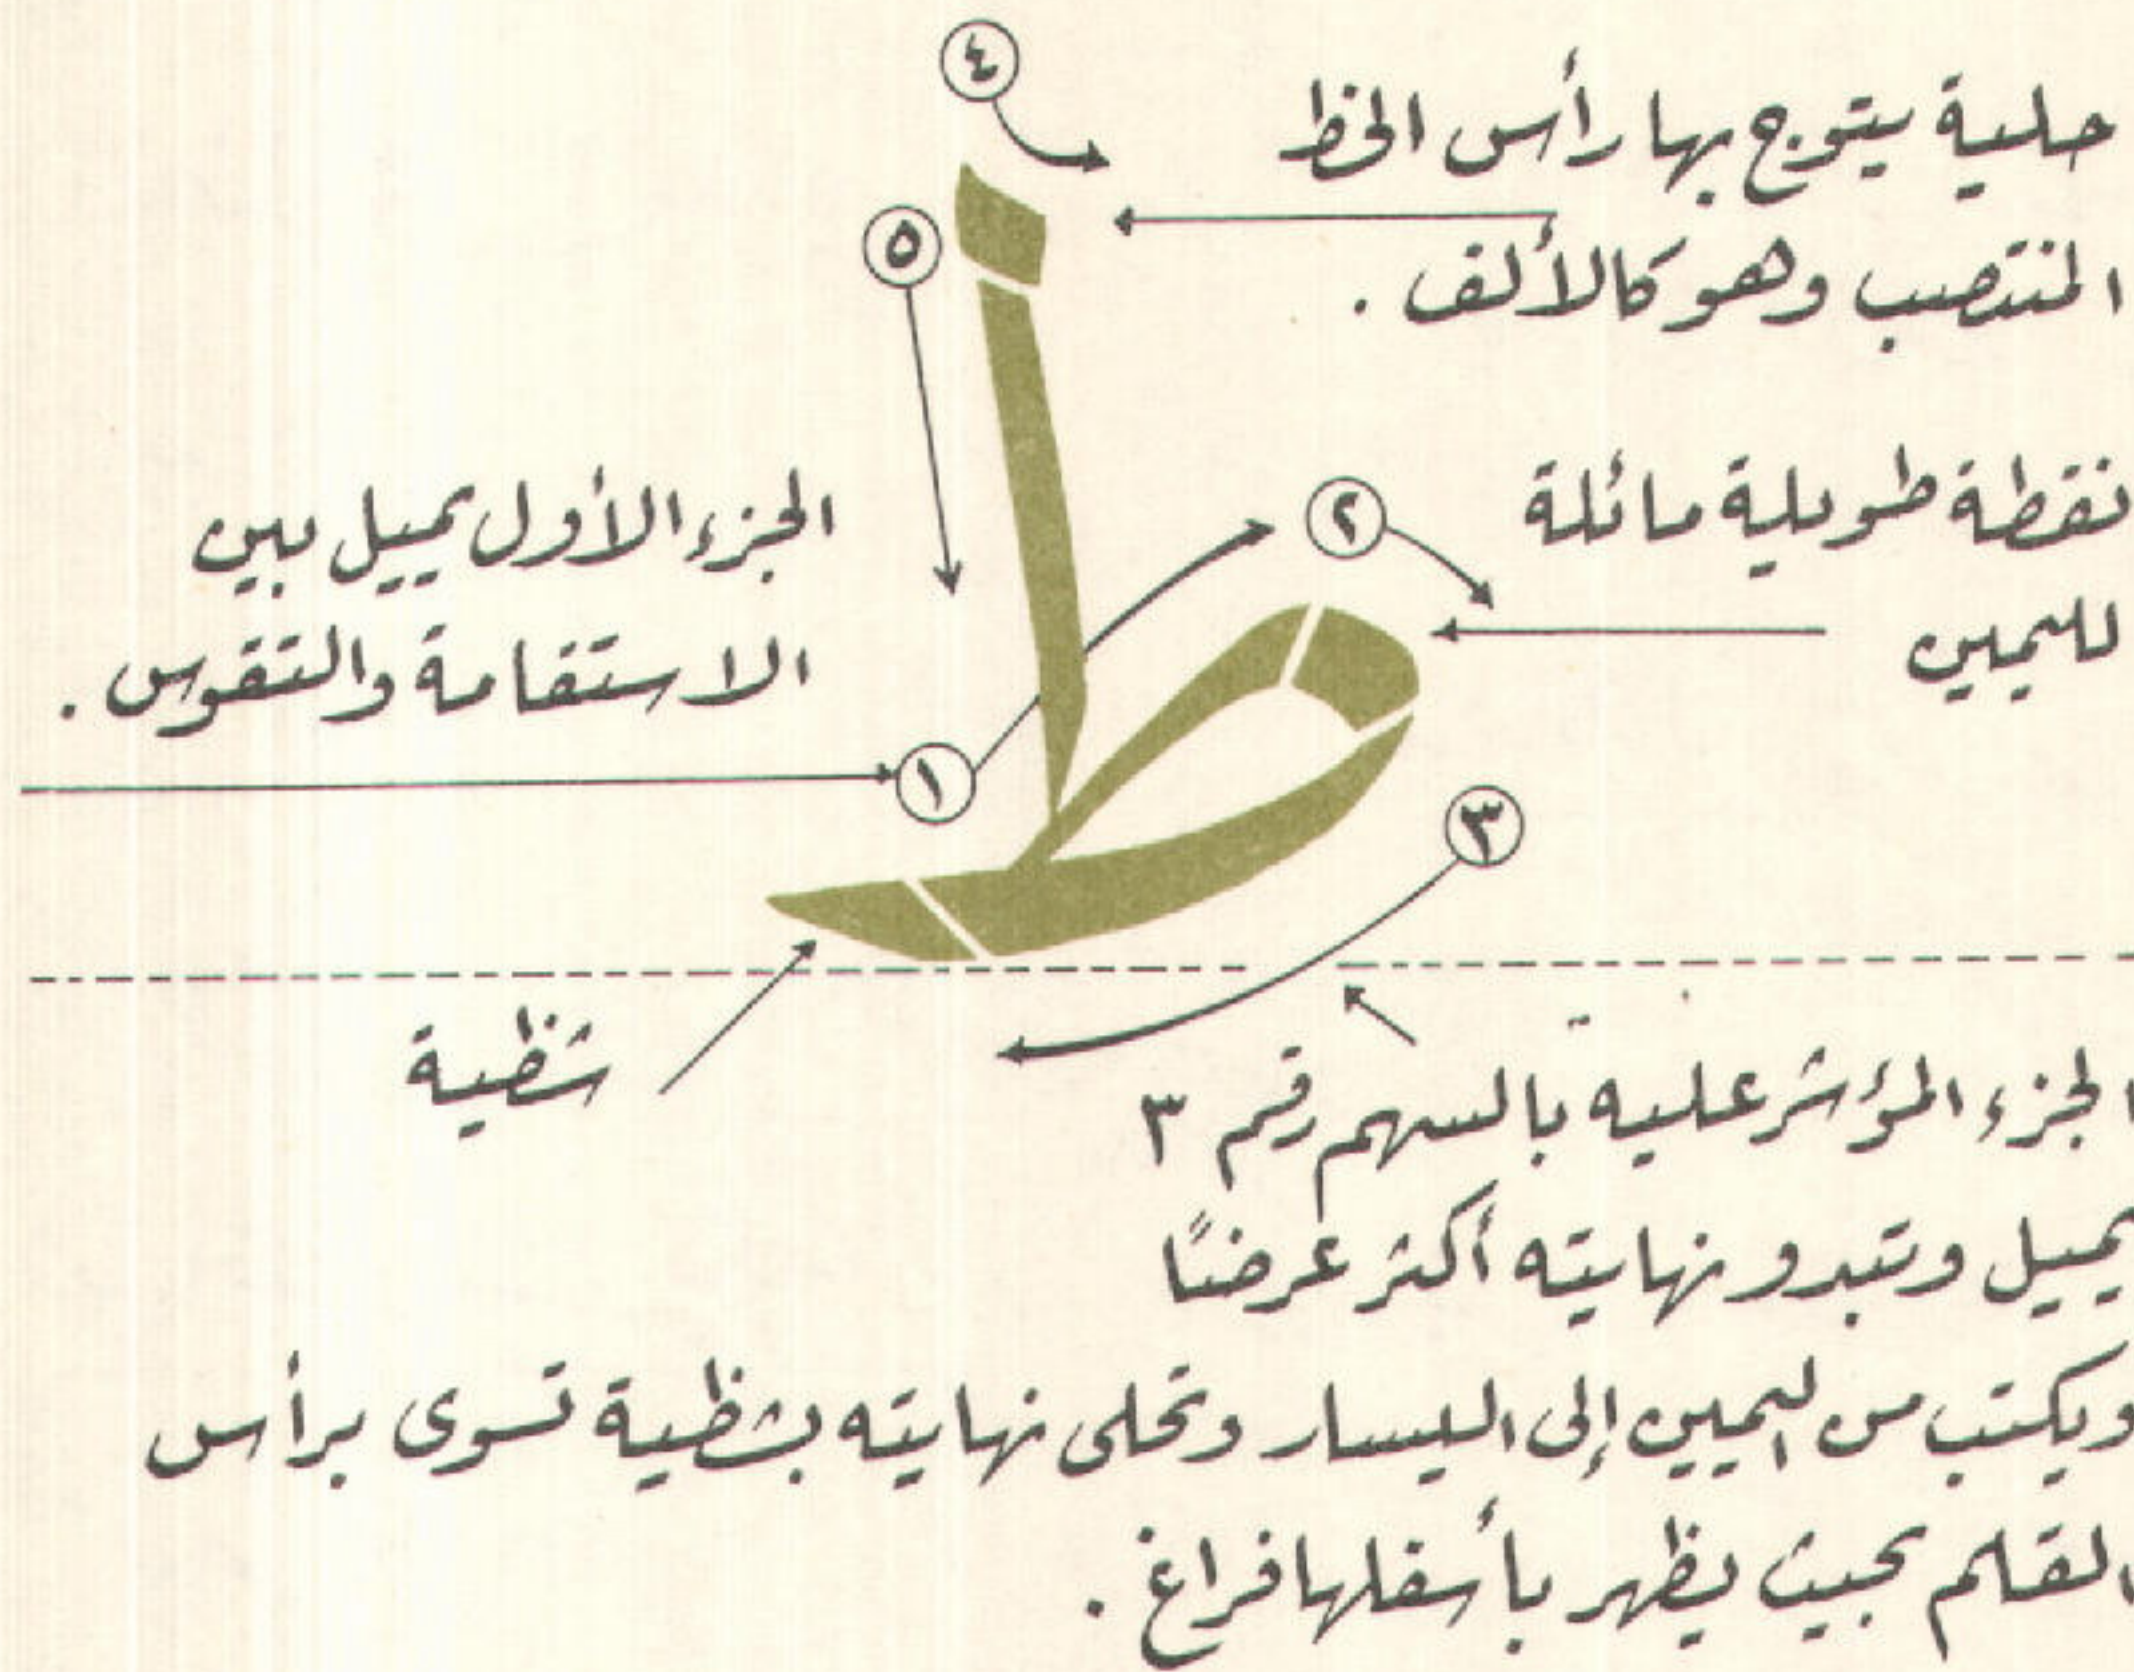 ٤
حلية يتوج بها رأس الخط
المنتصب وهو كالألف .
٥
نقطة طويلة مائلة
لليمين
٢
الجزء الأول يميل بين
الاستقامة والتقوس .
١
٣
شظية
الجزء المؤشر عليه بالسهم رقم ٣
يميل وتبدو نهايته أكثر عرضًا
ويكتب من اليمين إلى اليسار وتحلى نهايته بشظية تسوى برأس
القلم بحيث يظهر بأسفلها فراغ .